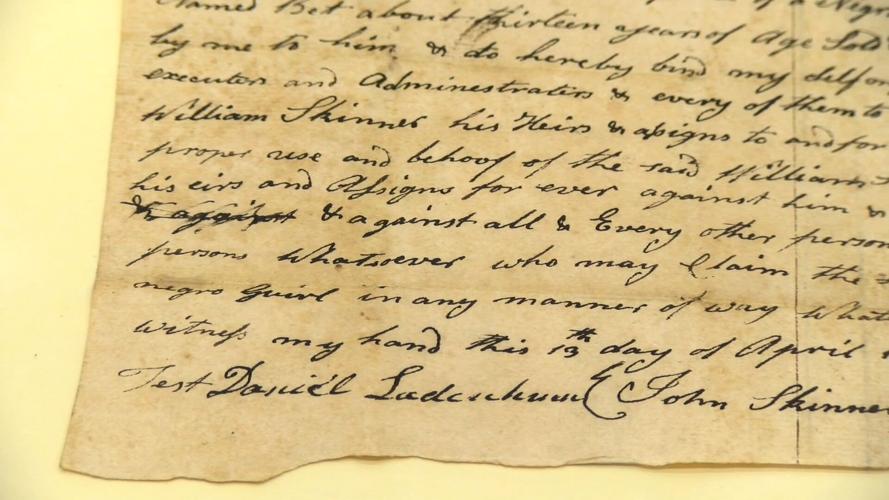 Named Bet about thirteen years of Age Sold
by me to him & do hereby bind my Self
executors and Adminestraters & every of them to
William Skinner his Heirs & assigns to and for
proper use and behoof of the said William
his eirs and Assigns for ever against him &
& against & against all & Every other person
persons Whatsoever who may Claim the
negro Guirl in any manner of way What
witness my hand this 13th day of April
Test Daniel John Skinner